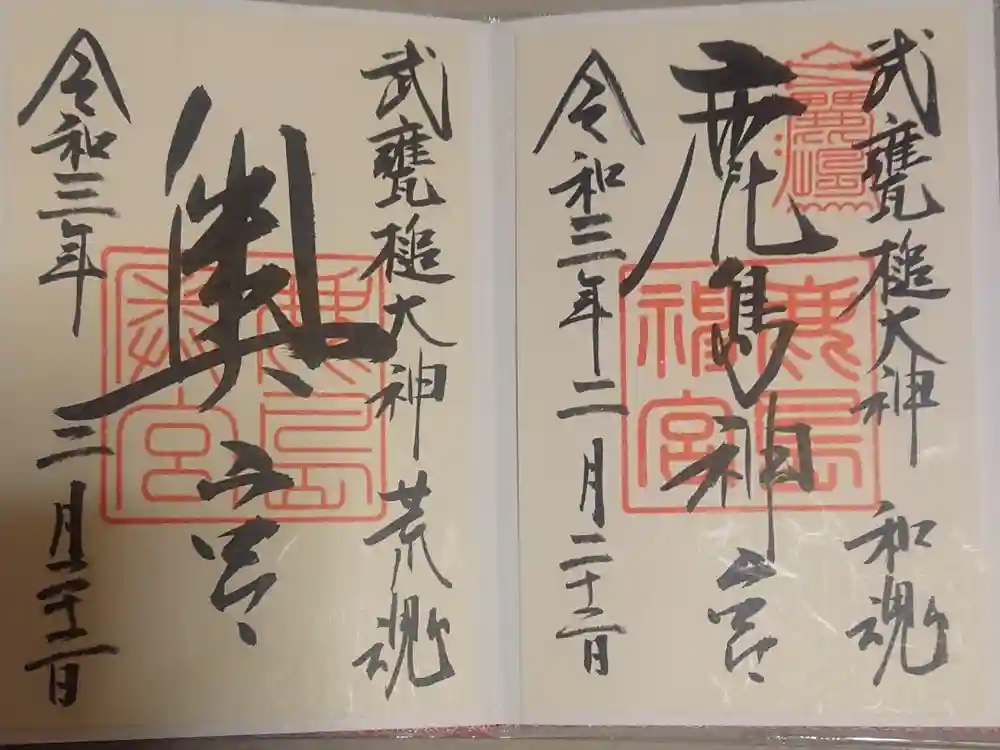 武甕槌大神 和魂
鹿島神宮
令和三年二月二十二日
武甕槌大神 荒魂
奥宮
令和三年三月二十二日
鹿島神宮